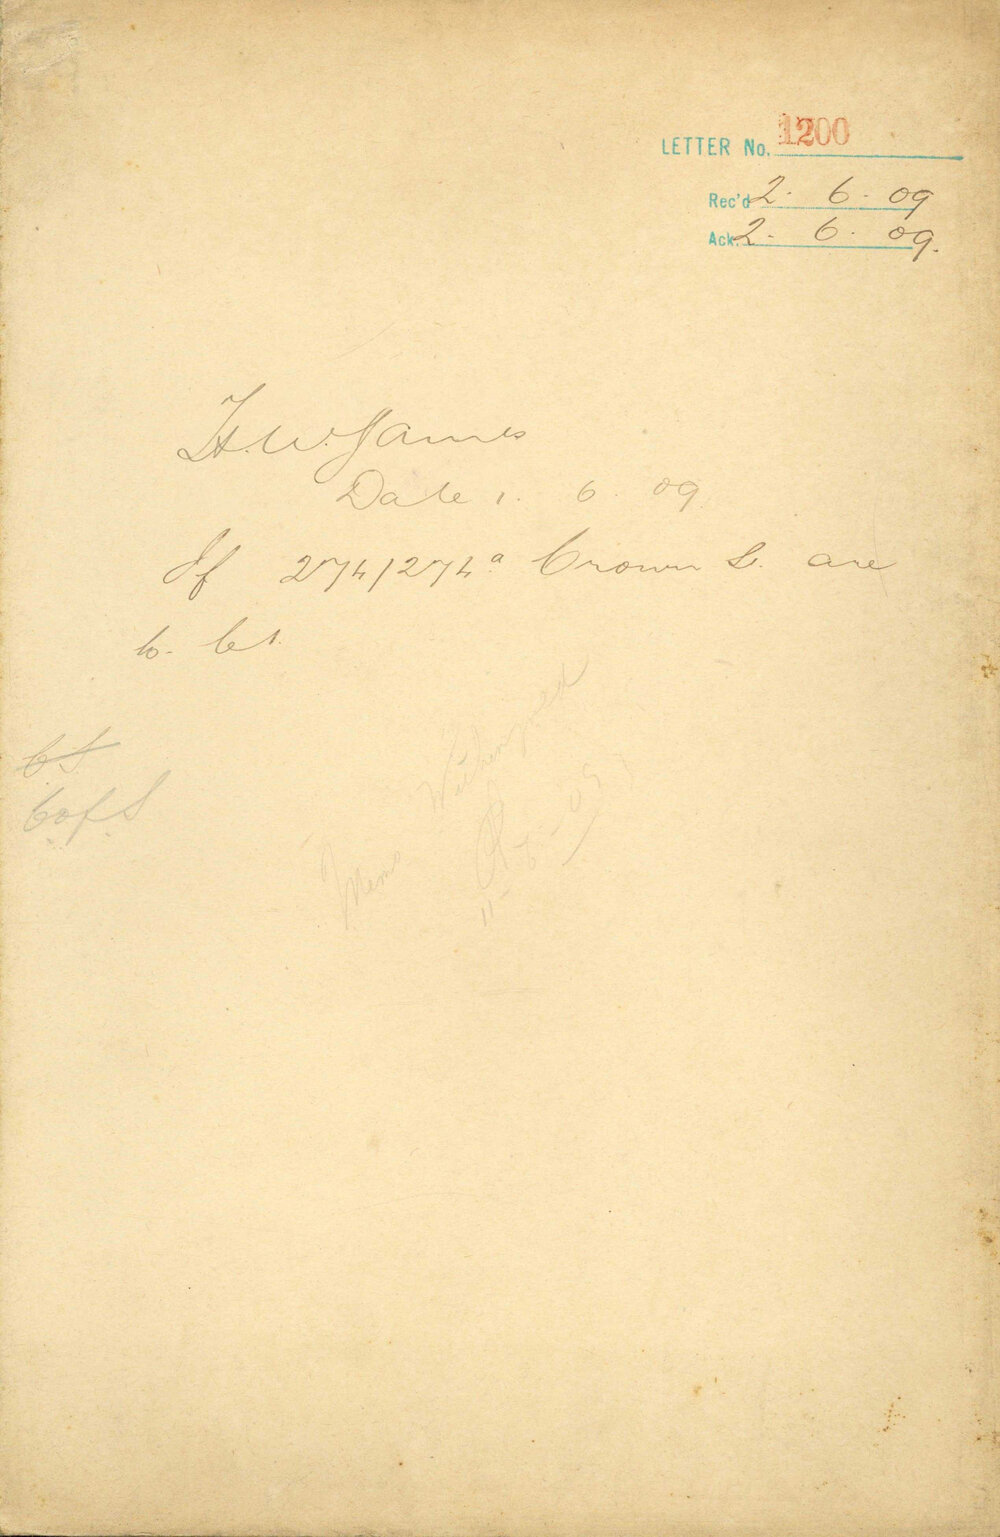 LETTER No. 1200
Rec'd 2. 6. 09
Ack. 2. 6. 09.
H. W. James
Date 1. 6. 09
If 274/274a Crown St. are
to let.
CS
C of S
Memo
11-6-09